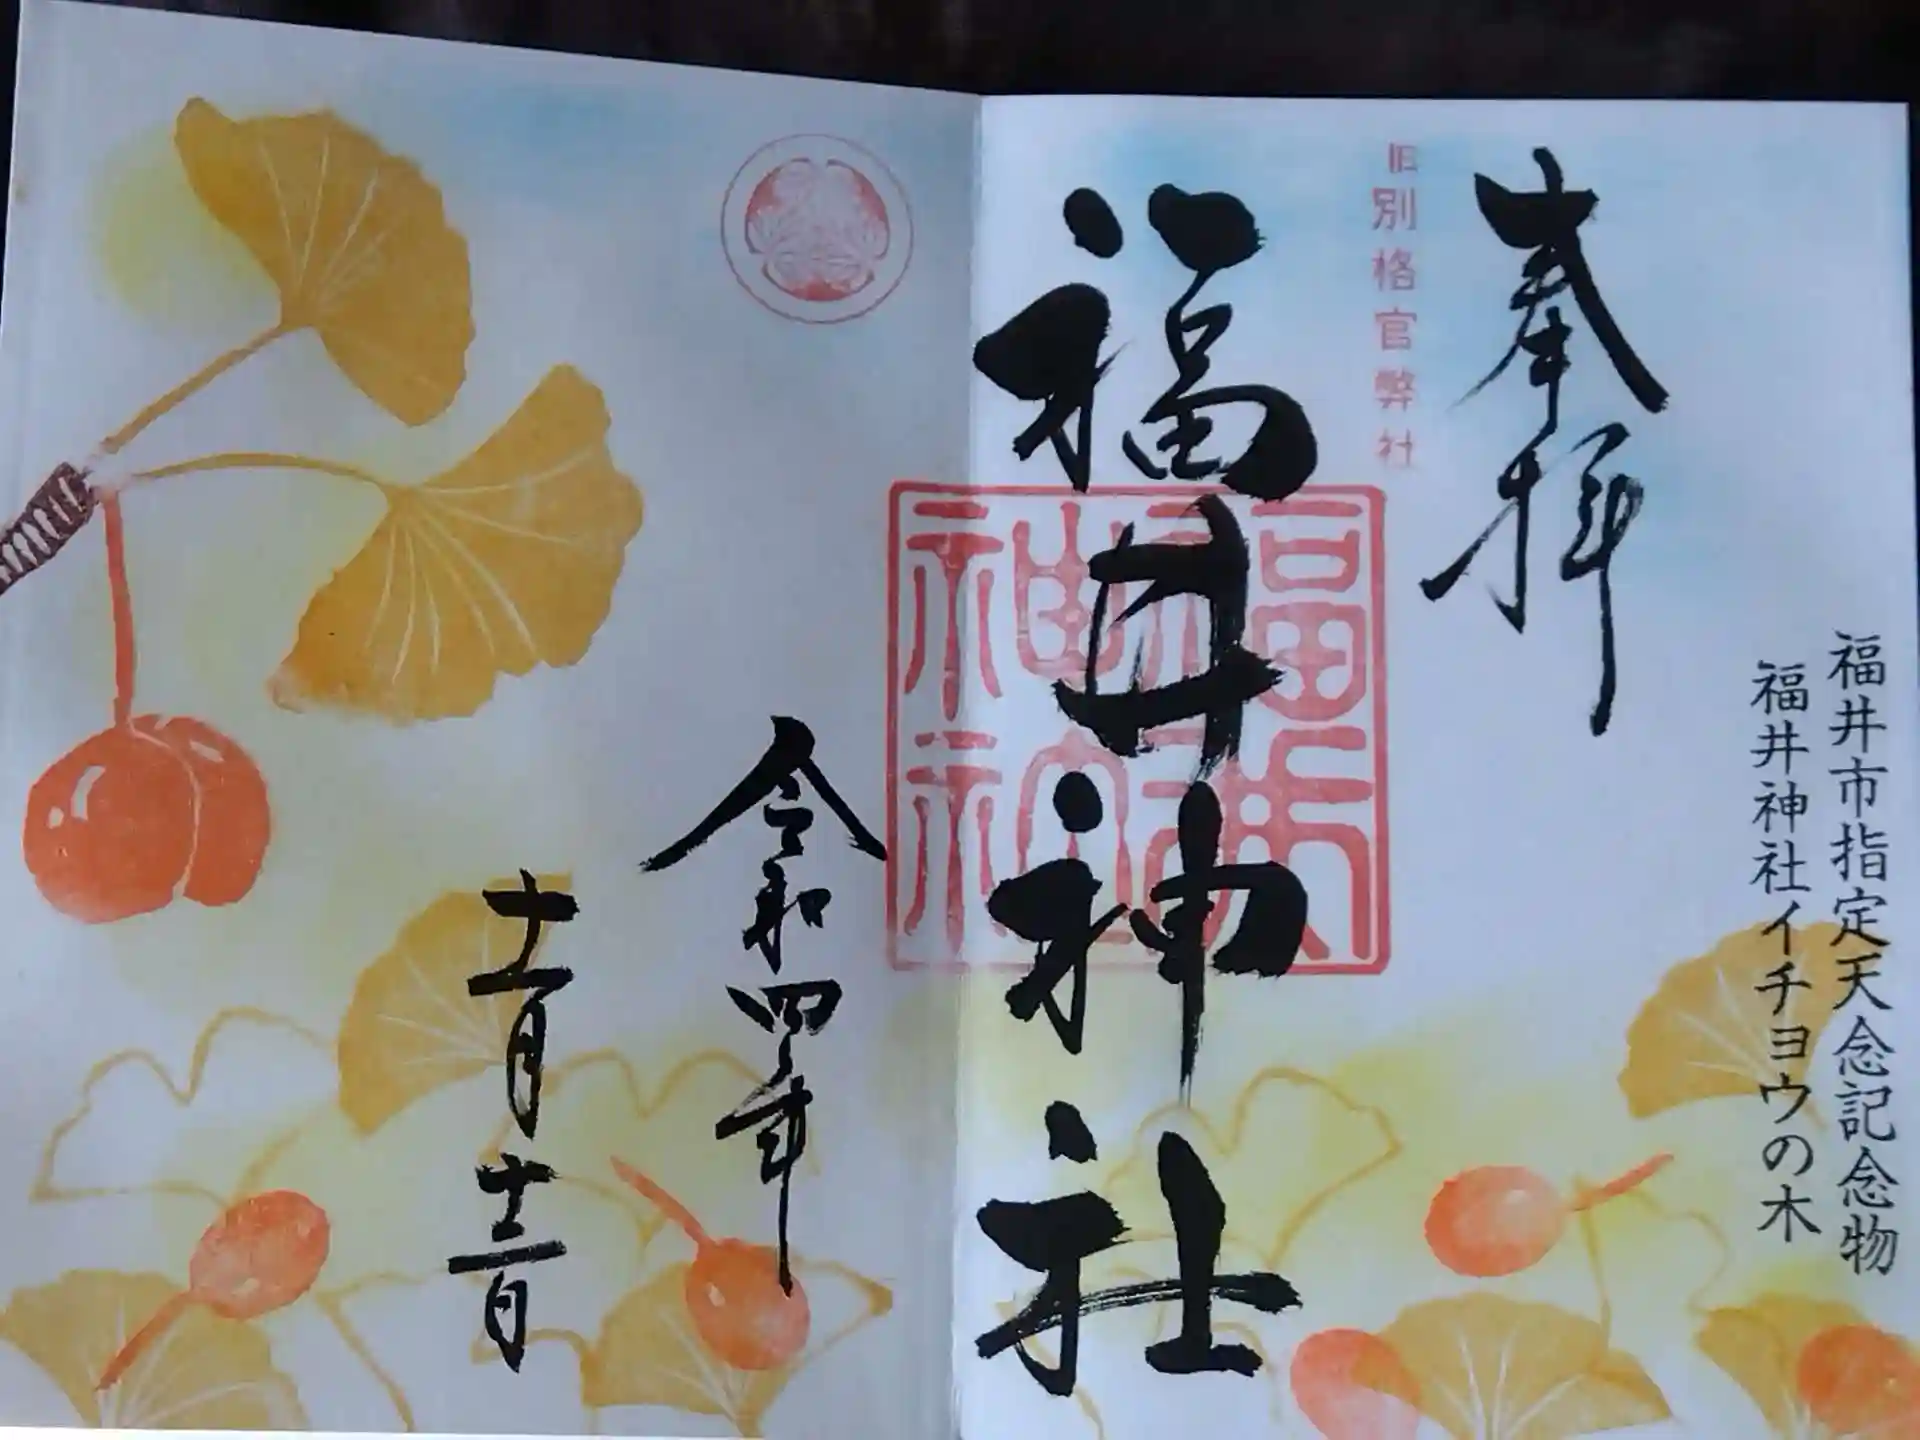 福井市指定天念記念物
福井神社イチョウの木
奉拝
旧別格官弊社
福井神社
令和四年
十一月十二日